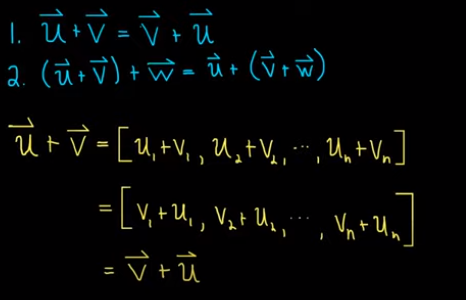 1. u⃗ + v⃗ = v⃗ + u⃗
2. (u⃗ + v⃗) + w⃗ = u⃗ + (v⃗ + w⃗)
u⃗ + v⃗ = [u₁+v₁, u₂+v₂, ⋯, uₙ+vₙ]
= [v₁+u₁, v₂+u₂, ⋯, vₙ+uₙ]
= v⃗ + u⃗